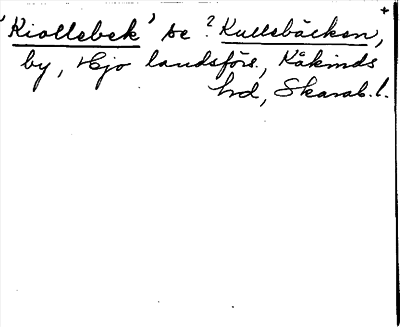 'Kiollebek' se ? Kullebäcken,
by, Hjo landsförs., Kåkinds
hd, Skarab.l.